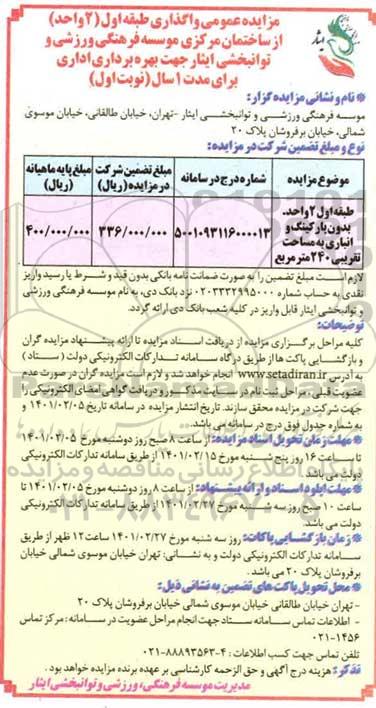 مزایده عمومی واگذاری طبقه اول (۲ واحد)
از ساختمان مرکزی موسسه فرهنگی ورزشی و
توانبخشی ایثار جهت بهره برداری اداری
برای مدت ۱ سال (نوبت اول)
ایثار
* نام و نشانی مزایده گزار:
موسسه فرهنگی ورزشی و توانبخشی ایثار -تهران، خیابان طالقانی، خیابان موسوی
شمالی، خیابان برفروشان پلاک ۲۰
نوع و مبلغ تضمین شرکت در مزایده:
موضوع مزایده | شماره درج در سامانه | مبلغ تضمین شرکت در مزایده (ریال) | مبلغ پایه ماهیانه (ریال)
طبقه اول ۲ واحد، بدون پارکینگ و انباری به مساحت تقریبی ۲۴۰ متر مربع | ۵۰۰۱۰۹۳۱۱۶۰۰۰۰۱۳ | ۳۳۶/۰۰۰/۰۰۰ | ۴۰۰/۰۰۰/۰۰۰
لازم است مبلغ تضمین را به صورت ضمانت نامه بانکی بدون قید و شرط یا رسید واریز
نقدی به حساب شماره ۰۲۰۳۳۳۲۹۹۵۰۰۰ نزد بانک دی، به نام موسسه فرهنگی ورزشی
و توانبخشی ایثار قابل واریز در کلیه شعب بانک دی ارائه گردد.
توضیحات:
کلیه مراحل برگزاری مزایده از دریافت اسناد مزایده تا ارائه پیشنهاد مزایده گران
و بازگشایی پاکت ها از طریق درگاه سامانه تدارکات الکترونیکی دولت (ستاد)
به آدرس www.setadiran.ir انجام خواهد شد و لازم است مزایده گران در صورت عدم
عضویت قبلی، مراحل ثبت نام در سایت مذکور و دریافت گواهی امضای الکترونیکی را
جهت شرکت در مزایده محقق سازند. تاریخ انتشار مزایده در سامانه تاریخ ۱۴۰۱/۰۲/۰۵ و
به شماره جدول فوق درج در سامانه می باشد.
* مهلت زمان تحویل اسناد مزایده: از ساعت ۸ صبح روز دوشنبه مورخ ۱۴۰۱/۰۲/۰۵
تا ساعت ۱۶ روز پنج شنبه مورخ ۱۴۰۱/۰۲/۱۵ از طریق سامانه تدارکات الکترونیکی
دولت می باشد.
* مهلت آپلود اسناد و ارائه پیشنهاد: از ساعت ۸ روز دوشنبه مورخ ۱۴۰۱/۰۲/۰۵ تا
ساعت ۱۰ صبح روز سه شنبه مورخ ۱۴۰۱/۰۲/۲۷ از طریق سامانه تدارکات الکترونیکی
دولت می باشد.
* زمان بازگشایی پاکات: روز سه شنبه مورخ ۱۴۰۱/۰۲/۲۷ ساعت ۱۲ ظهر از طریق
سامانه تدارکات الکترونیکی دولت و به نشانی: تهران خیابان موسوی شمالی خیابان
برفروشان پلاک ۲۰ می باشد.
* محل تحویل پاکت های تضمین به نشانی ذیل:
- تهران خیابان طالقانی خیابان موسوی شمالی خیابان برفروشان پلاک ۲۰
- اطلاعات تماس سامانه ستاد جهت انجام مراحل عضویت در سامانه: مرکز تماس
۰۲۱-۱۴۵۶
تلفن تماس جهت کسب اطلاعات: ۴-۸۸۸۹۳۵۶۳-۰۲۱
تذکر: هزینه درج آگهی و حق الزحمه کارشناسی بر عهده برنده مزایده خواهد بود.
مدیریت موسسه فرهنگی، ورزشی و توانبخشی ایثار